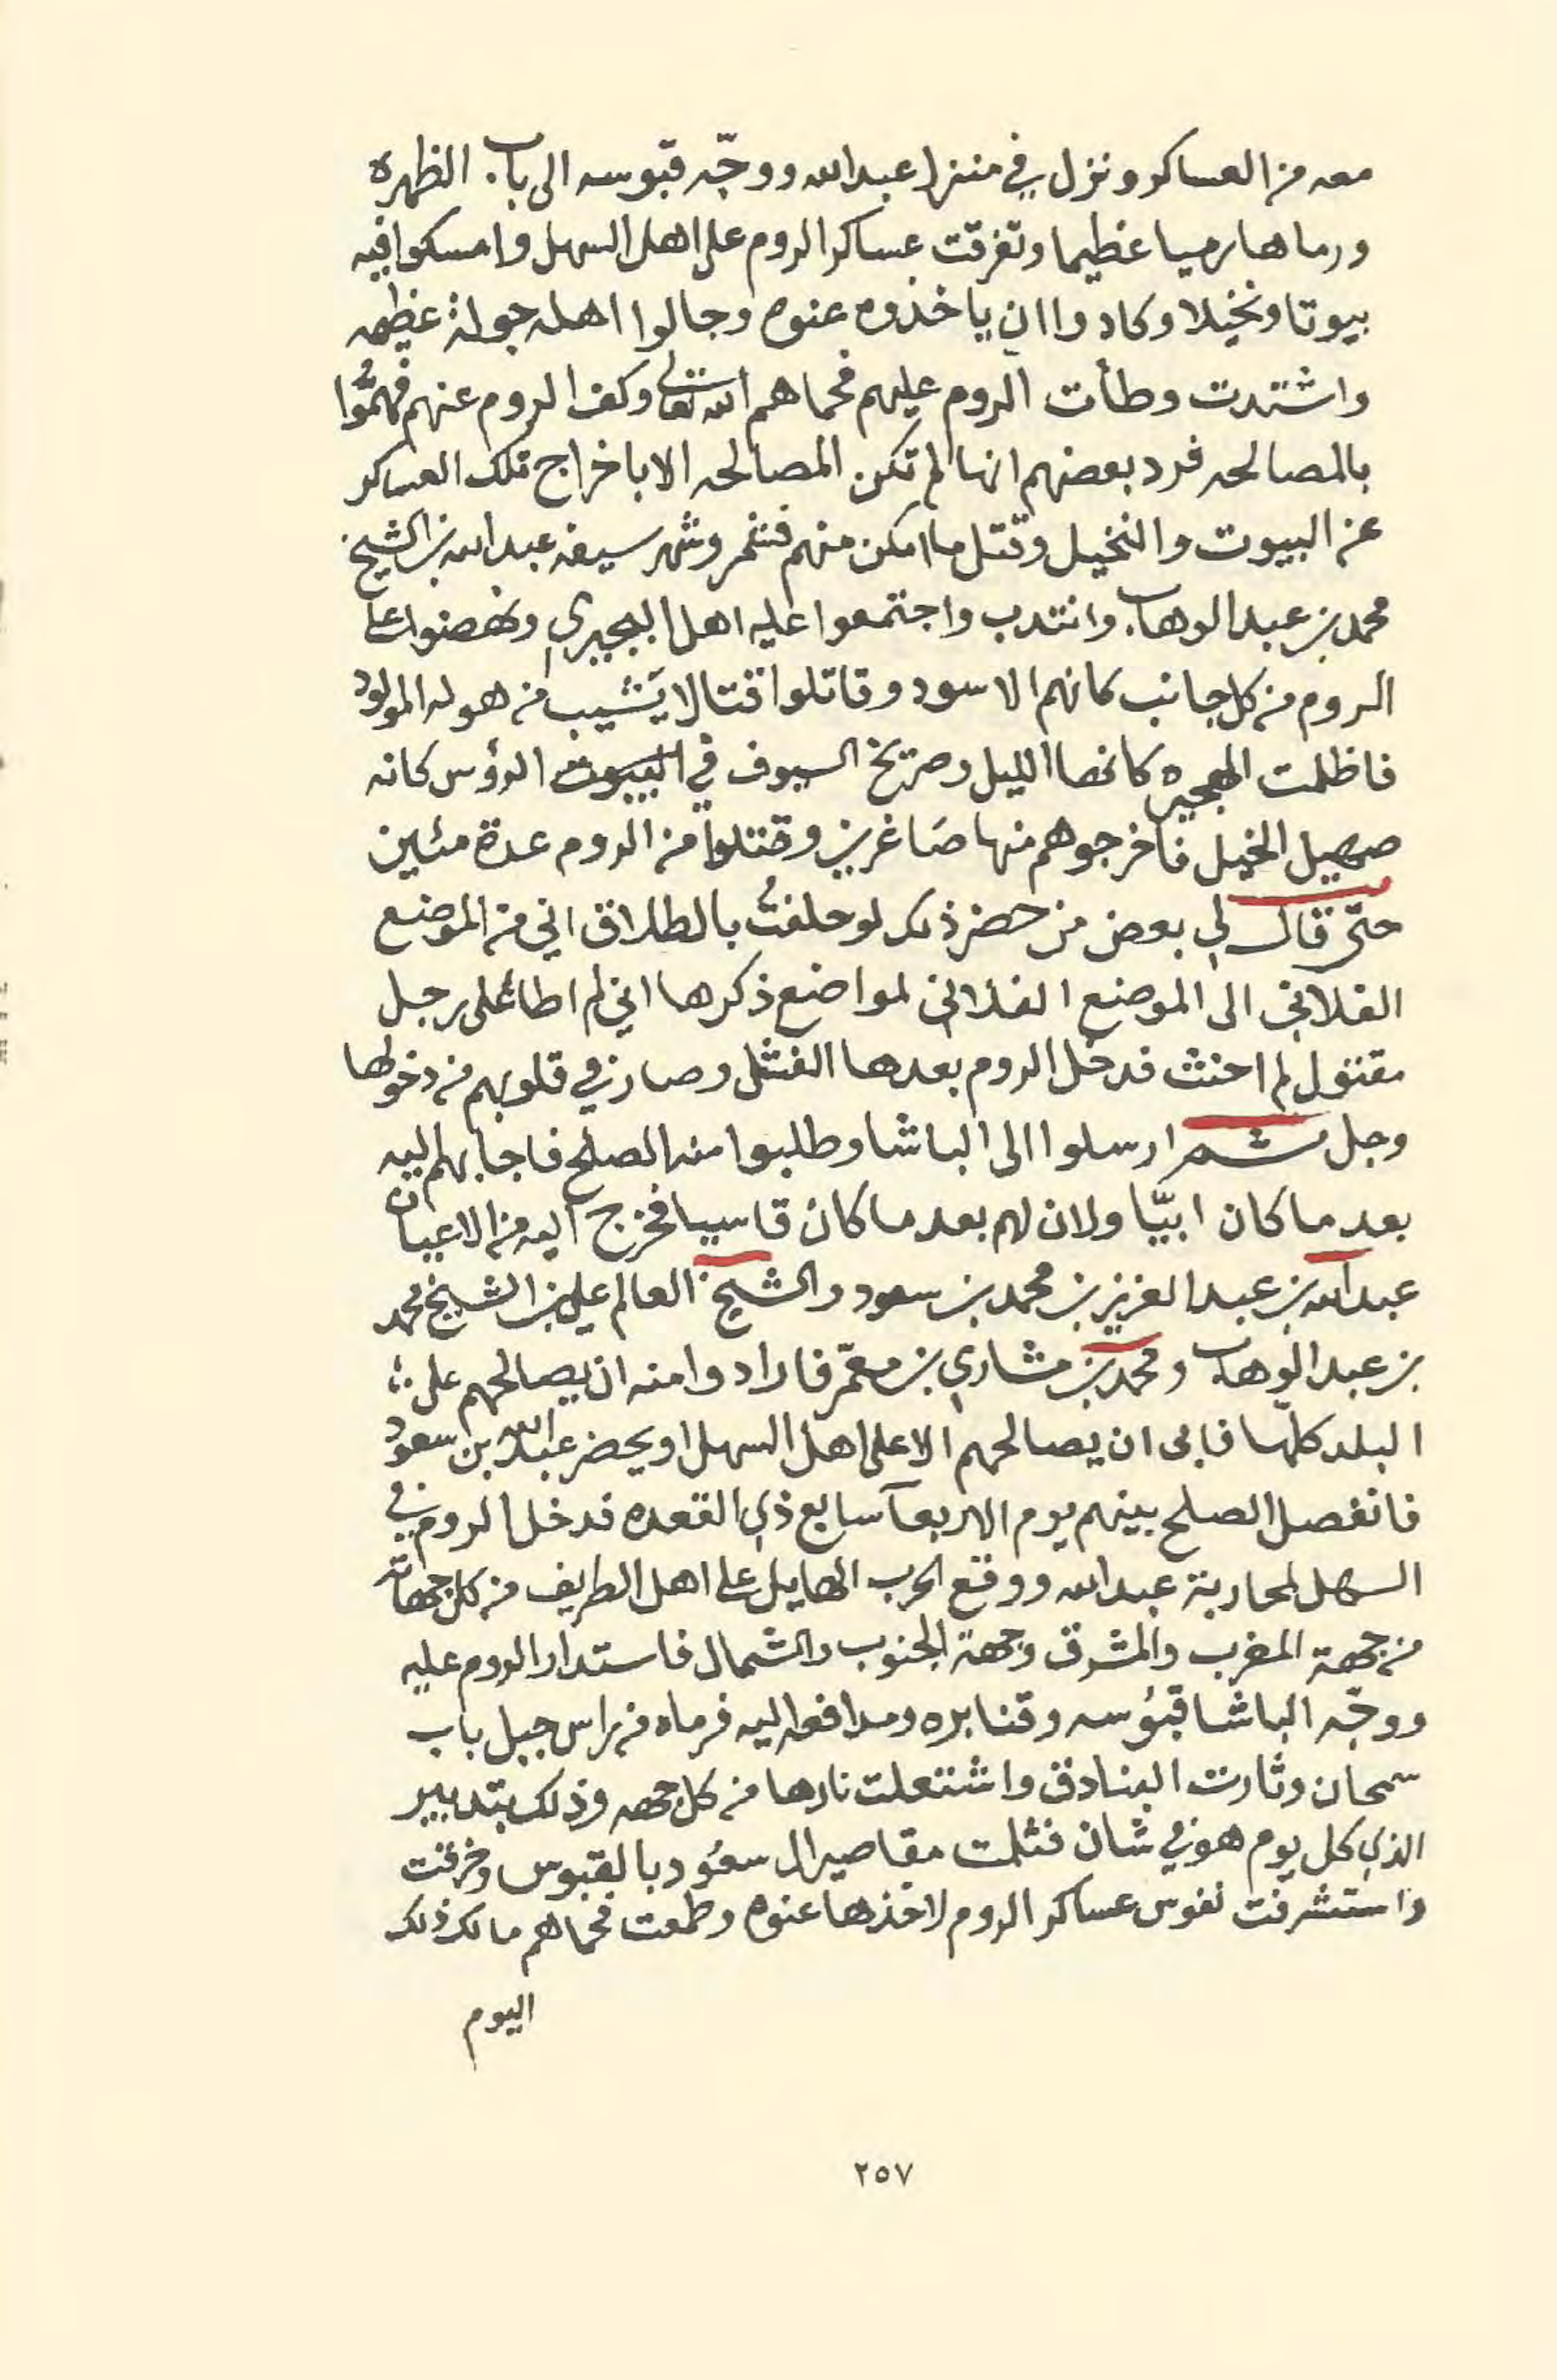 معه من العساكر ونزل في منزل عبدالله ووجّه قبوسه الى باب الظهره
ورماها رميا عظيما وتفرقت عساكر الروم على اهل السهل وامسكوا فيه
بيوتا ونخيلا وكادوا ان ياخذوه عنوه وجالوا اهله جولة عظيمه
واشتدت وطأت الروم عليهم فحماهم الله تعالى وكف الروم عنهم فهمُّوا
بالمصالحه فرد بعضهم انها لم تكن المصالحه الا باخراج تلك العساكر
عن البيوت والنخيل وقتل ما امكن منهم فشمر وشهر سيفه عبدالله بن الشيخ
محمد بن عبدالوهاب وانتدب واجتمعوا عليه اهل البجيري ونهضوا على
الروم من كل جانب كانهم الاسود وقاتلوا قتالا يَشيب من هوله المولود
فاظلمت الهجيره كانها الليل وصريخ السيوف في الرؤس كانه
صهيل الخيل فاخرجوهم منها صَاغرين وقتلوا من الروم عدة مئين
حتّى قال لي بعض من حضر ذلك لو حلفتُ بالطلاق اني من الموضع
الفلاني الى الموضع الفلاني لمواضع ذكرها اني لم اطا على رجل
مقتول لم احنث فدخل الروم بعدها الفشل وصار في قلوبهم من دخولها
وجل ثم ارسلوا الى الباشا وطلبوا منه الصلح فاجابهم اليه
بعد ما كان ابيّا ولان لهم بعد ما كان قاسيا فخرج اليه من الاعيان
عبدالله بن عبدالعزيز بن محمد بن سعود والشيخ العالم علي بن الشيخ محمد
بن عبدالوهاب ومحمد بن مشاري بن معمّر فارادوا منه ان يصالحهم على
البلد كلّها فابى ان يصالحهم الا على اهل السهل او يحضر عبدالله بن سعود
فانفصل الصلح بينهم يوم الاربعآ سابع ذي القعده فدخل الروم في
السهل لمحاربة عبدالله ووقع الحرب الهايل على اهل الطريف من كل جهاته
من جهة المغرب والمشرق وجهة الجنوب والشمال فاستدار الروم عليه
ووجّه الباشا قبُوسه وقنابره ومدافعه اليه فرماه من راس جبل باب
سمحان وثارت البنادق واشتعلت نارها من كل جهه وذلك بتدبير
الذي كل يوم هو في شان فثلمت مقاصير ال سعُود بالقبوس وخرقت
واستشرفت نفوس عساكر الروم لاخذها عنوه وطمعت فحماهم مالك ذلك
اليوم
٢٥٧